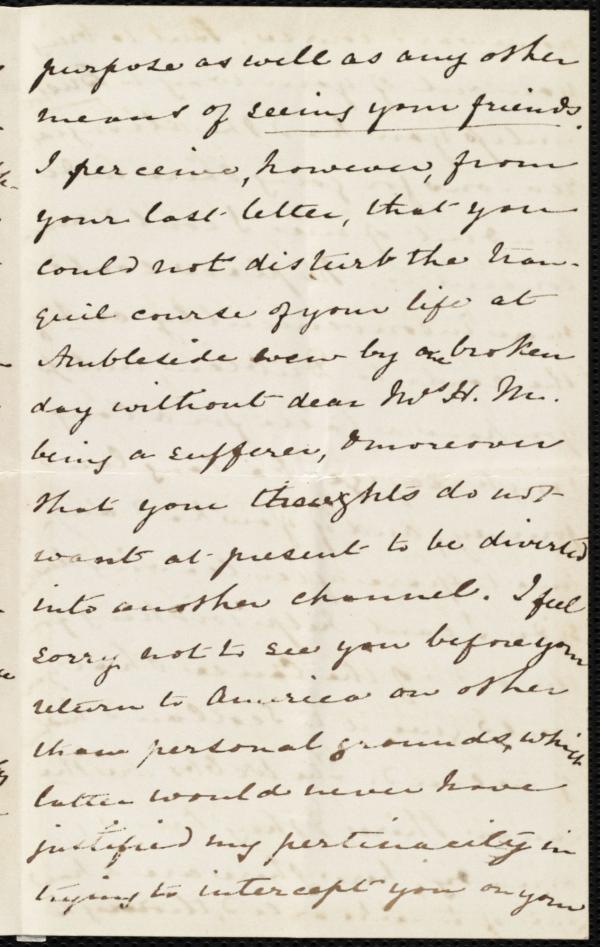 purpose as well as any other
means of seeing your friends.
I perceive, however, from
your last letter, that you
could not disturb the tran-
quil course of your life at
Ambleside even by a broken
day without dear Mrs H. M.
being a sufferer, & moreover
that your thoughts do not
want at present to be diverted
into another channel. I feel
sorry not to see you before your
return to America on other
than personal grounds, which
latter would never have
justified my pertinacity in
trying to intercept you on your